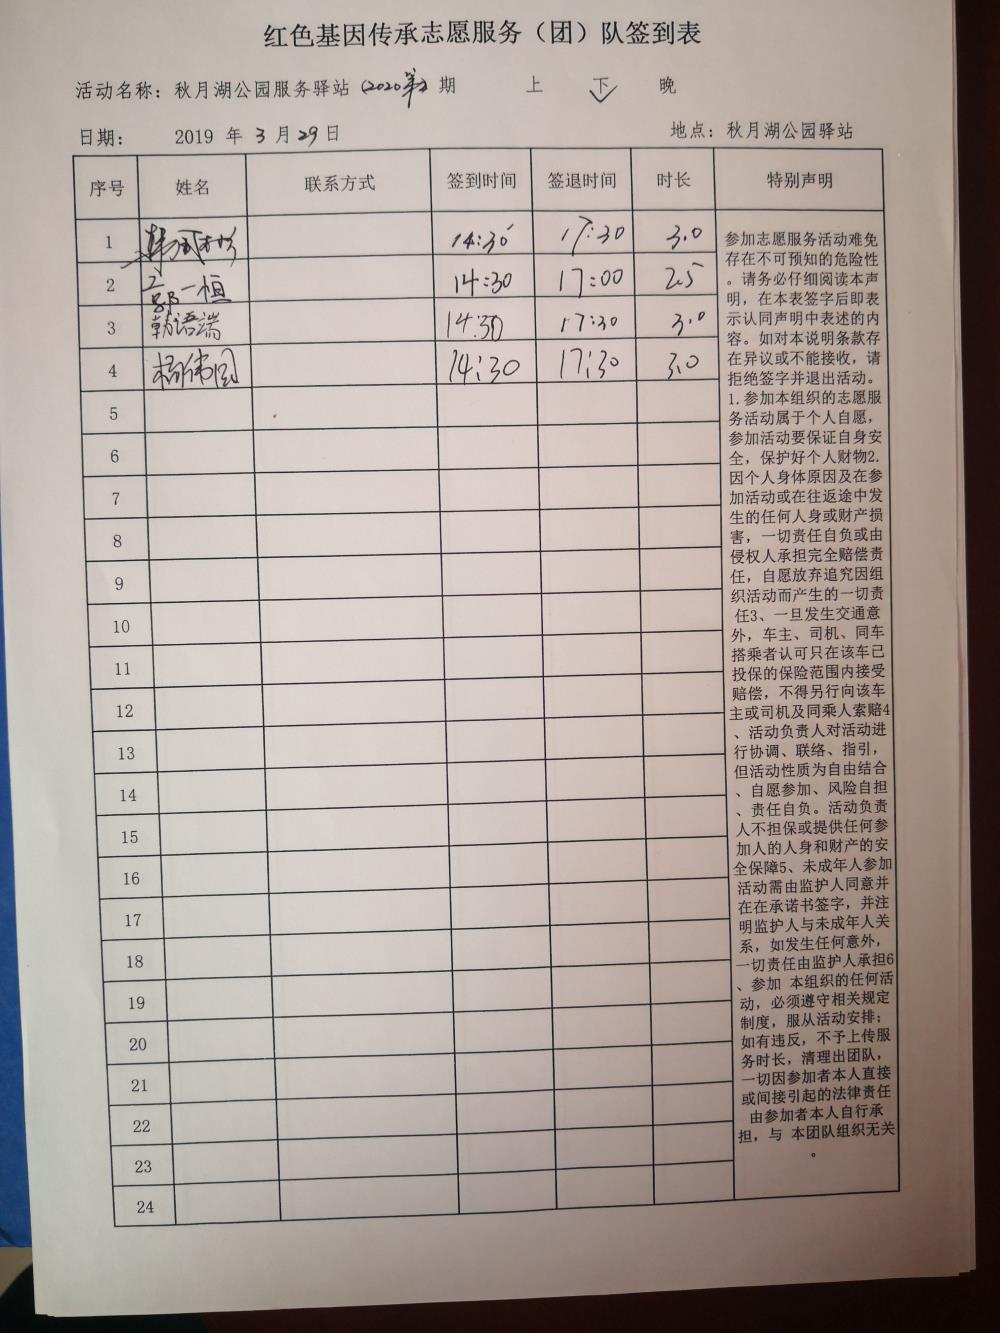 红色基因传承志愿服务（团）队签到表
活动名称：秋月湖公园服务驿站（2020第2期 上 下 晚
日期： 2019 年 3 月 29 日 地点：秋月湖公园驿站
序号 姓名 联系方式 签到时间 签退时间 时长 特别声明
1 14:30 17:30 3.0
2 一恒 14:30 17:00 2.5
3 韩语端 14:30 17:30 3.0
4 杨伟国 14:30 17:30 3.0
5
6
7
8
9
10
11
12
13
14
15
16
17
18
19
20
21
22
23
24
参加志愿服务活动难免
存在不可预知的危险性
。请务必仔细阅读本声
明，在本表签字后即表
示认同声明中表述的内
容。如对本说明条款存
在异议或不能接收，请
拒绝签字并退出活动。
1.参加本组织的志愿服
务活动属于个人自愿，
参加活动要保证自身安
全，保护好个人财物2.
因个人身体原因及在参
加活动或在往返途中发
生的任何人身或财产损
害，一切责任自负或由
侵权人承担完全赔偿责
任，自愿放弃追究因组
织活动而产生的一切责
任3、一旦发生交通意
外，车主、司机、同车
搭乘者认可只在该车已
投保的保险范围内接受
赔偿，不得另行向该车
主或司机及同乘人索赔4
、活动负责人对活动进
行协调、联络、指引，
但活动性质为自由结合
、自愿参加、风险自担
、责任自负。活动负责
人不担保或提供任何参
加人的人身和财产的安
全保障5、未成年人参加
活动需由监护人同意并
在在承诺书签字，并注
明监护人与未成年人关
系，如发生任何意外，
一切责任由监护人承担6
、参加 本组织的任何活
动，必须遵守相关规定
制度，服从活动安排；
如有违反，不予上传服
务时长，清理出团队，
一切因参加者本人直接
或间接引起的法律责任
由参加者本人自行承
担，与 本团队组织无关
。